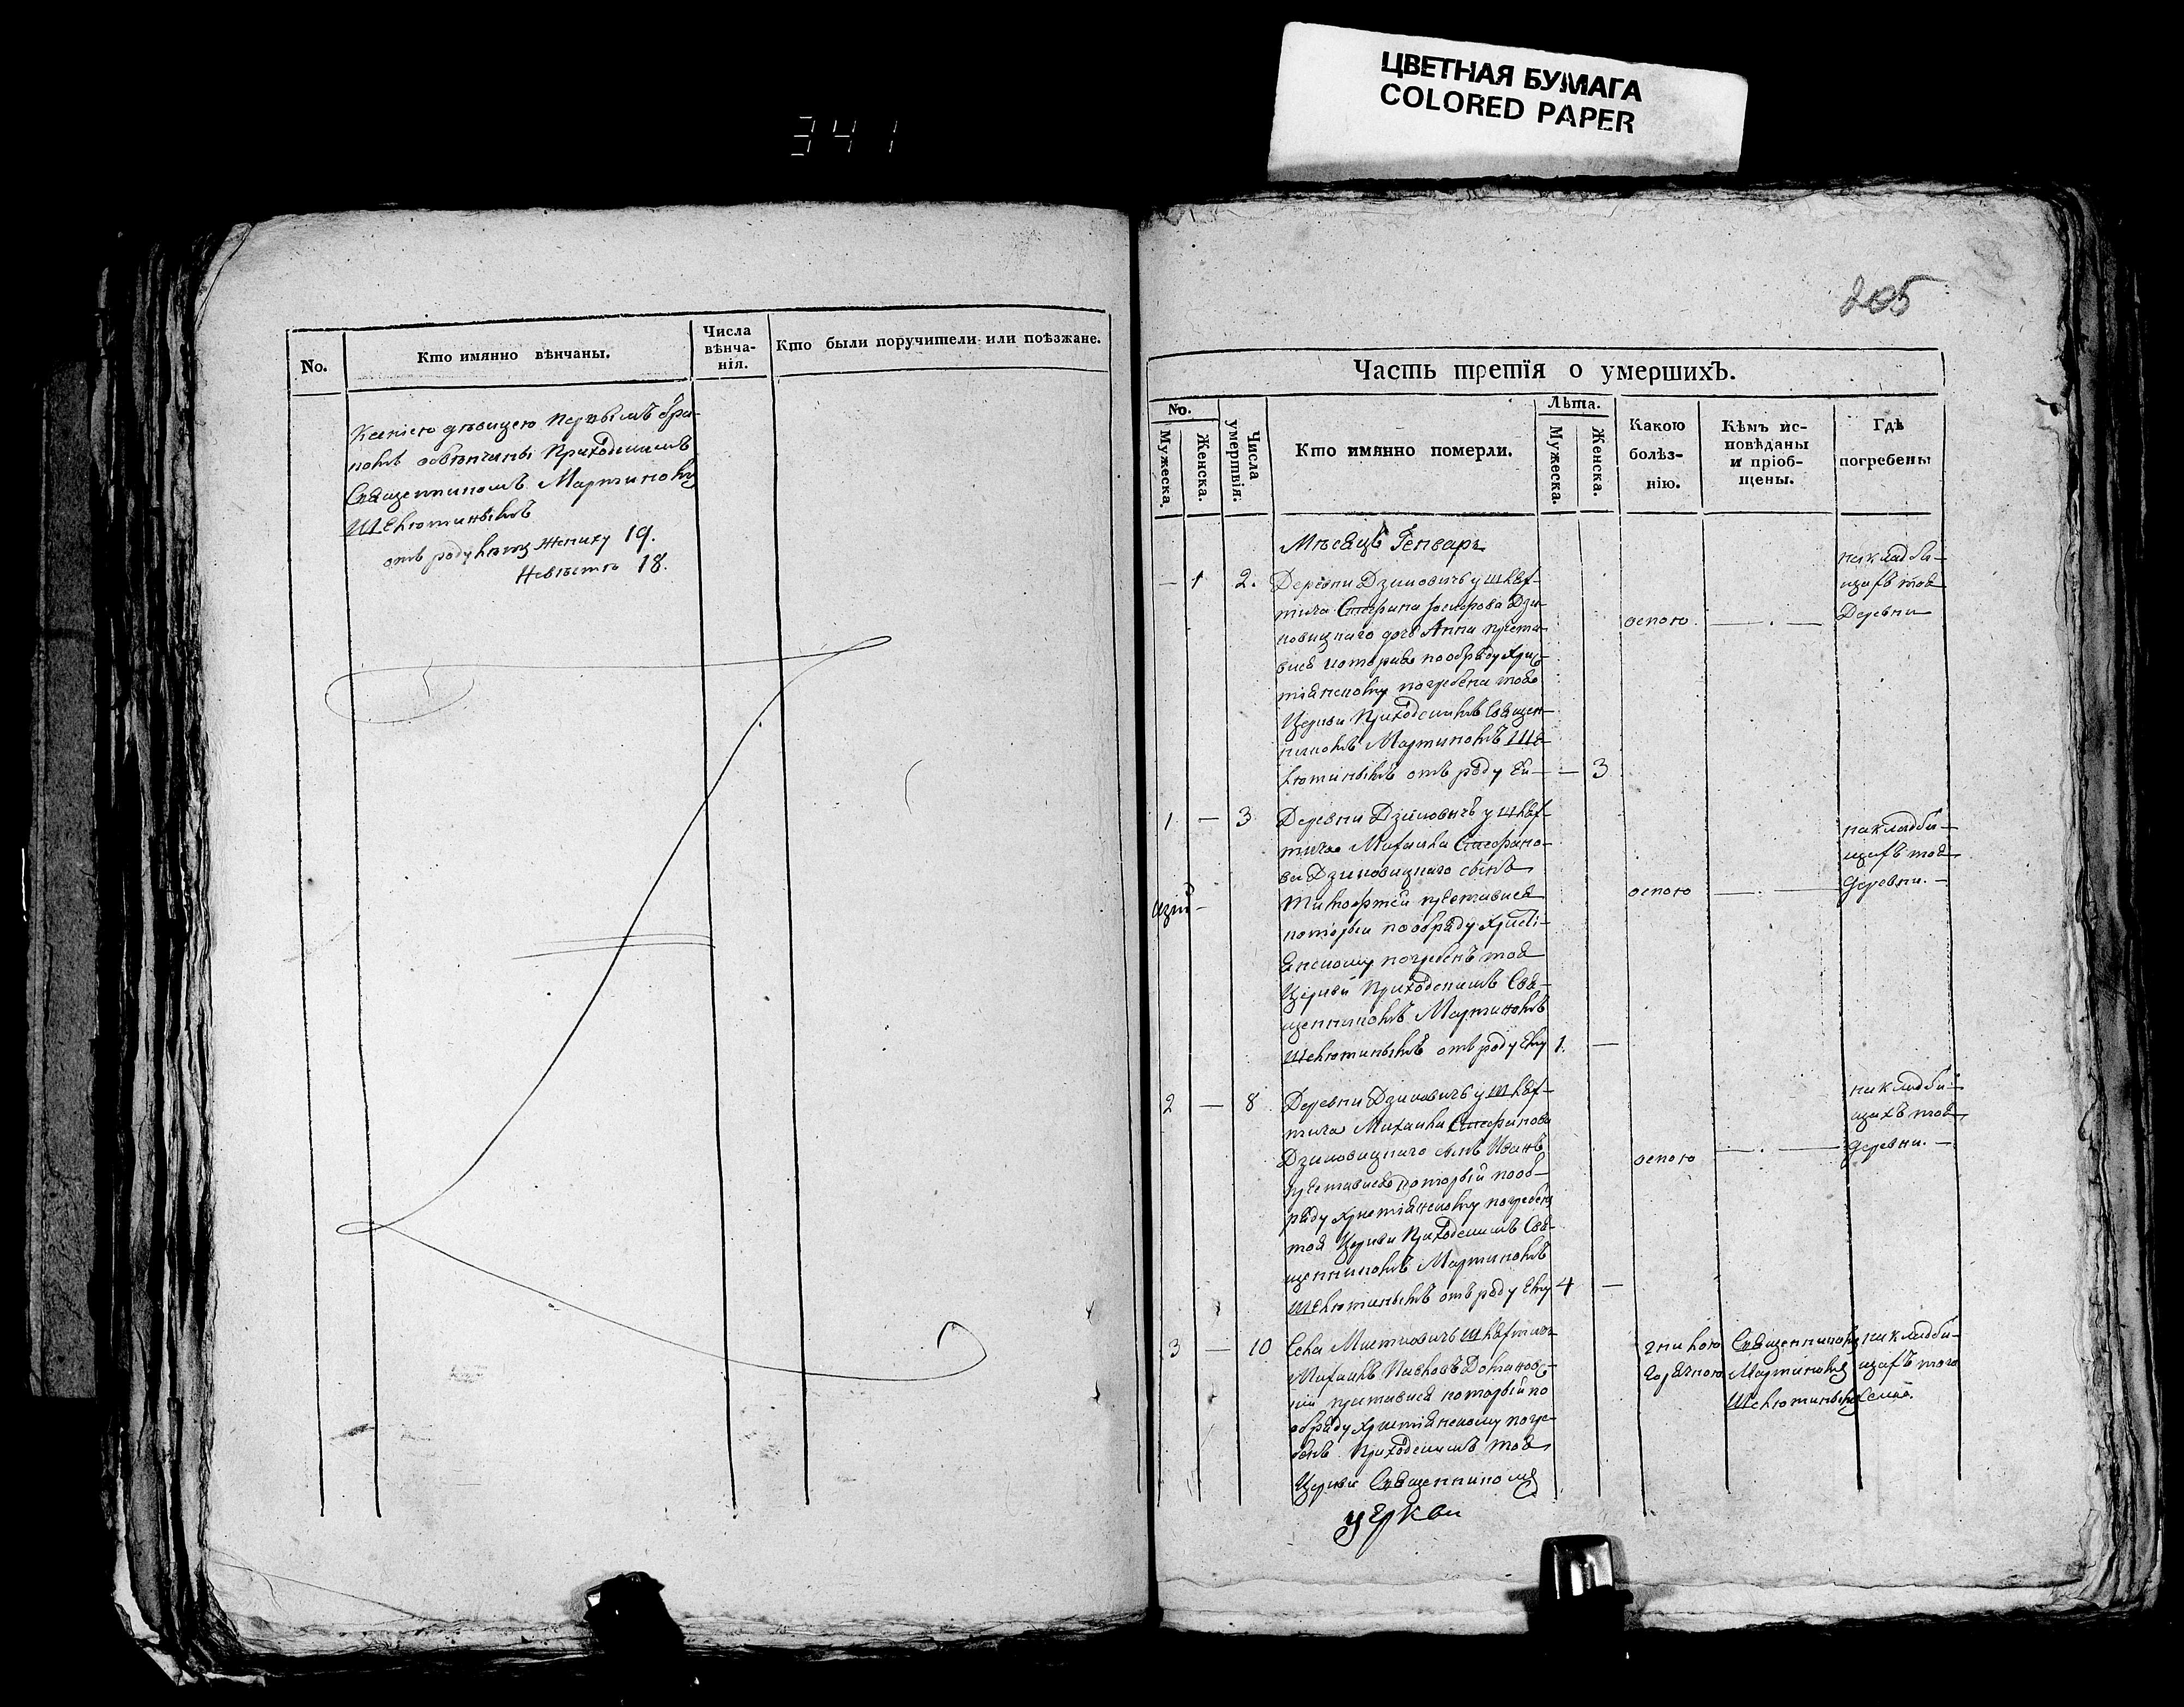 ЦВЕТНАЯ БУМАГА
COLORED PAPER
341
No.
Кто имянно вѣнчаны.
Числа вѣнча-нія.
Кто были поручители или поѣзжане.
Ксенiею дѣвицею первымъ бра-
комъ обвѣнчаны Приходскимъ
Священникомъ Мартиномъ
отъ роду Жениху 19.
Невѣсте 18.
205
Часть третія о умершихъ.
No.
Мужеска.
Женска.
Числа умертвія.
Кто имянно померли.
Лѣта.
Мужеска.
Женска.
Какою болѣз-нію.
Кѣмъ ис-повѣданы и пріоб-щены.
Гдѣ погребены
Мѣсяцъ Генварь
— 1 2. Деревни Дзиковичъ у шлях-
тича Стефана Дзи-
ковицкаго дочь Анна преста-
вися которая пообряду Хрис-
тіянскому погребена тоя
Церкви Приходскимъ Священ-
никомъ Мартиномъ
отъ роду ей — — 3
оспою — . —
на кладби-
щахъ тоя
Деревни
1 — 3 Деревни Дзиковичъ у шлях-
тича Михаила Стефано-
ва Дзиковицкаго сынъ
Тимофтей преставися
который пообряду Христі-
янскому погребенъ тоя
Церкви Приходскимъ Свя-
щенникомъ Мартиномъ
отъ роду ему 1. —
оспою — . —
на кладби-
щахъ тоя
деревни. —
2 — 8 Деревни Дзиковичъ у шлях-
тича Михаила Стефанова
Дзиковицкаго сынъ Иванъ
преставися который пооб-
ряду Христіянскому погребенъ
тоя Церкви Приходскимъ Свя-
щенникомъ Мартиномъ
отъ роду ему 4 —
оспою — . —
на кладби-
щахъ тоя
деревни. —
3 — 10 Села шляхтичъ
Михаилъ
преставися который по
обряду Христіянскому погре-
бенъ Приходскимъ тоя
Церкви Священникомъ
гнилою
горячкою
Священникомъ
Мартиномъ
на кладби-
щахъ того
села.
церкви